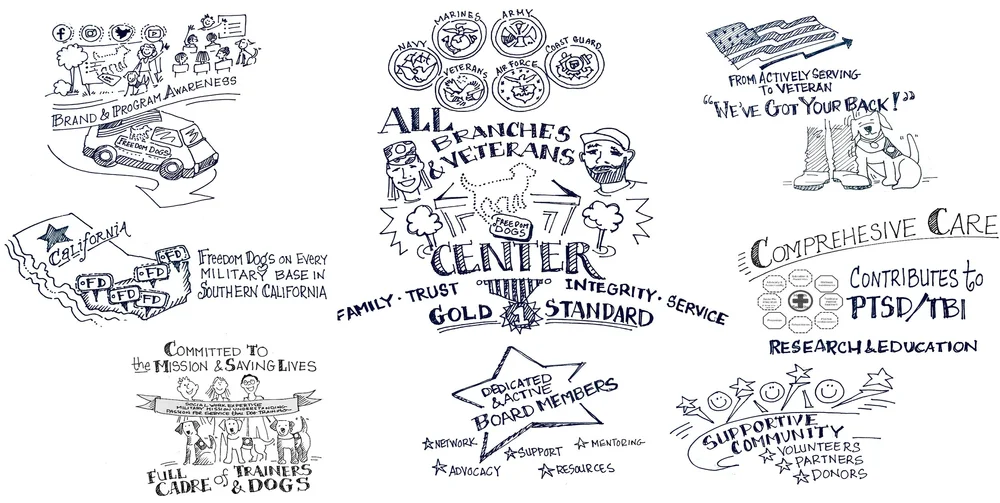 BRAND & PROGRAM AWARENESS
FREEDOM DOGS
MARINES
ARMY
NAVY
VETERANS
AIR FORCE
COAST GUARD
ALL BRANCHES
& VETERANS
FREEDOM
DOGS
CENTER
FAMILY · TRUST
INTEGRITY · SERVICE
GOLD 1 STANDARD
FROM ACTIVELY SERVING
TO VETERAN
"WE'VE GOT YOUR BACK!"
California
FD
FD
FD
FD
FREEDOM DOGS ON EVERY
MILITARY BASE IN
SOUTHERN CALIFORNIA
COMPREHESIVE CARE
CONTRIBUTES to
PTSD/TBI
RESEARCH & EDUCATION
COMMITTED TO
the MISSION & SAVING LIVES
SOCIAL WORK EXPERTISE
MILITARY MISSION UNDERSTANDING
PASSION FOR SERVICE and DOG TRAINING
FULL CADRE of TRAINERS & DOGS
DEDICATED
& ACTIVE
BOARD MEMBERS
NETWORK
SUPPORT
MENTORING
ADVOCACY
RESOURCES
SUPPORTIVE
COMMUNITY
VOLUNTEERS
PARTNERS
DONORS